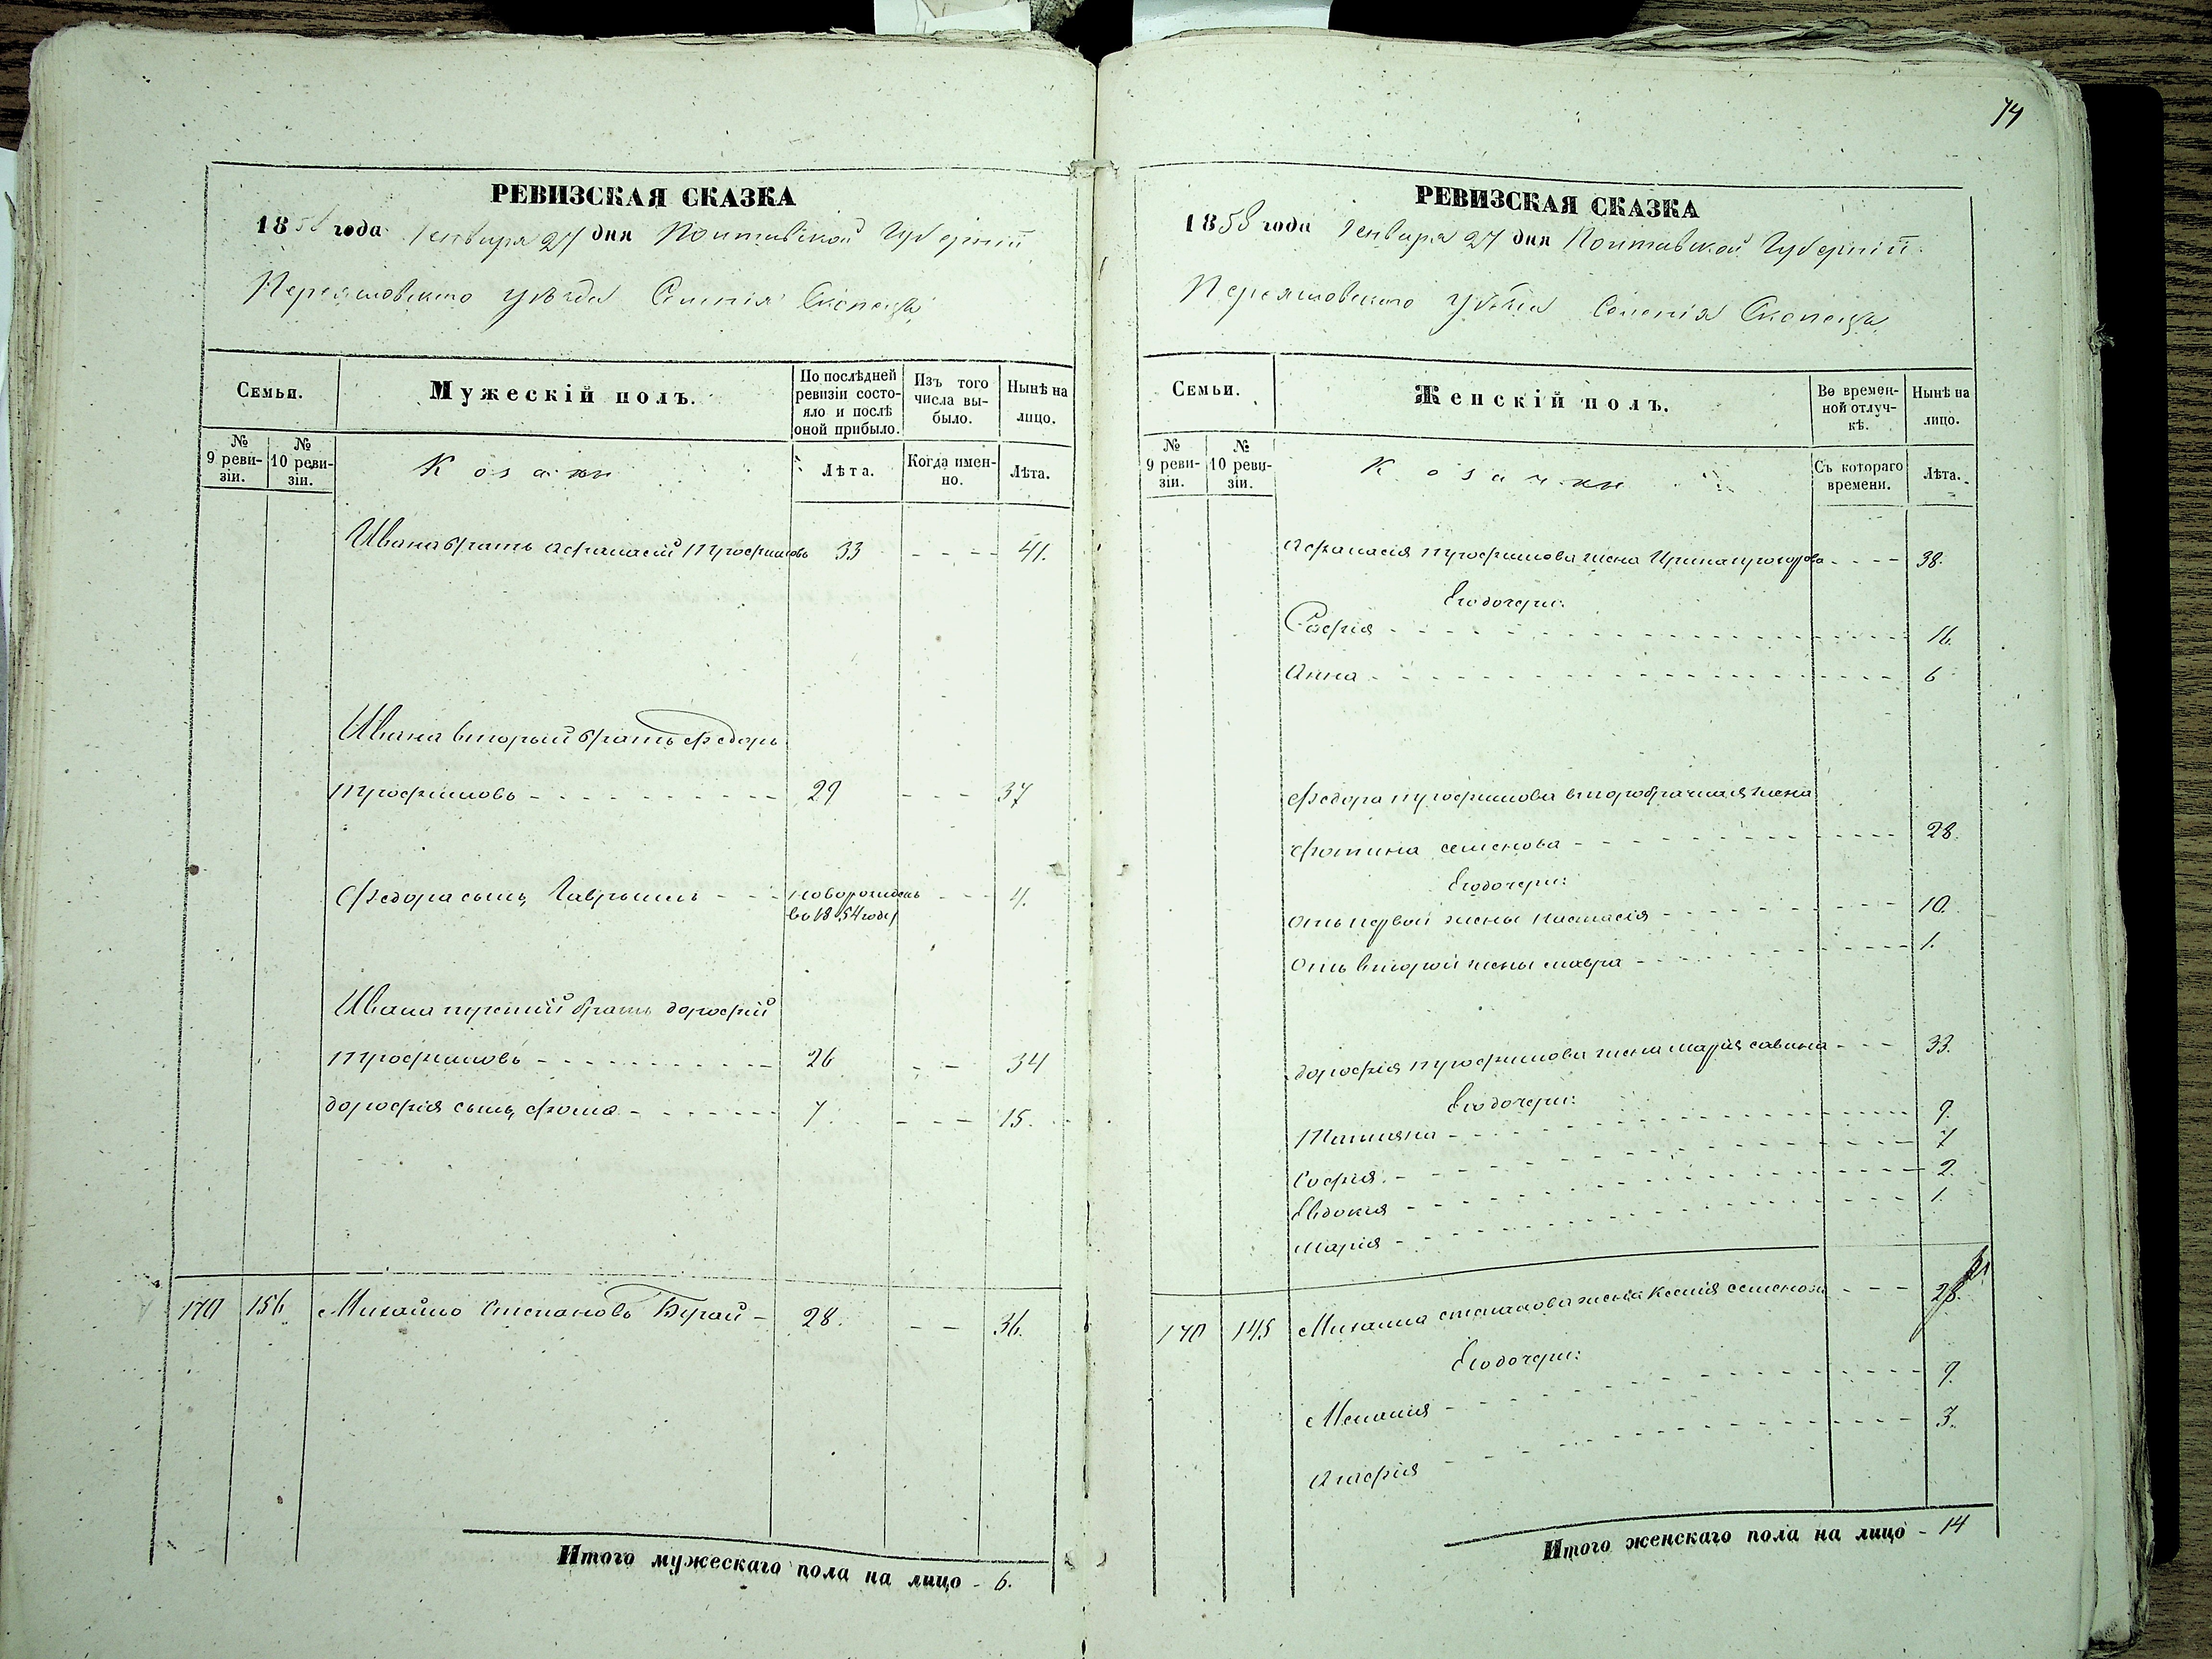 74
РЕВИЗСКАЯ СКАЗКА
1858 года Генваря 27 дня Полтавской Губерніи
Переясловского уѣзда Селенія Скопецъ
Семьи.
Мужескій полъ.
По послѣдней ревизіи состояло и послѣ оной прибыло.
Изъ того числа выбыло.
Нынѣ на лицо.
№ 9 ревизіи.
№ 10 ревизіи.
Козаки
Лѣта.
Когда именно.
Лѣта.
Ивана братъ Афанасій Трофимовъ 33 - - - - 41.
Ивана вторый братъ Федоръ
Трофимовъ - - - 29 - - - 37
Федора сынъ Гаврыилъ - - - новорожденъ - - - 4.
во 1854 году
Ивана третій братъ Дорофій
Трофимовъ - - - 26 - - 34
Дорофія сынъ Фома - - - 7. - - - 15.
170 156 Михайло Степановъ Бугай - 28. - - 36.
Итого мужескаго пола на лицо - 6.
РЕВИЗСКАЯ СКАЗКА
1858 года Генваря 27 дня Полтавской Губерніи
Переясловского уѣзда Селенія Скопецъ
Семьи.
Женскій полъ.
Во временной отлучкѣ.
Нынѣ на лицо.
№ 9 ревизіи.
№ 10 ревизіи.
Козачки
Съ котораго времени.
Лѣта.
Афанасія Трофимова жена Ирина - - - - 38.
Его дочери:
Софія - - - 16.
Анна - - - 6
Федора Трофимова второбрачная жена
Фотина Семенова - - - 28.
Его дочери:
Отъ первой жены Настасія - - - 10.
Отъ второй жены Мавра - - - 1.
Дорофія Трофимова жена Марія Савина - - - 33.
Его дочери:
Татіяна - - - 9.
Софія - - - 7
Евдокія - - - 2.
Марія - - - 1.
170 145 Михаила Степанова жена Ксенія Семенова - - - 28.
Его дочери:
Меланія - - - 9.
Агафія - - - 3.
Итого женскаго пола на лицо - 14